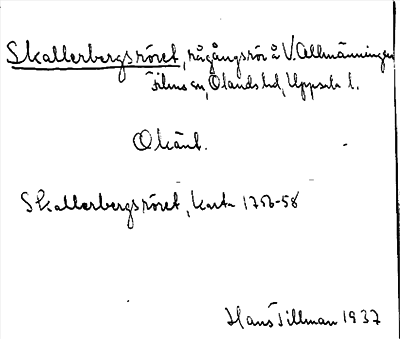 Skallerbergsröret, rågångsrör å V. Allmänningen
Films sn, Olands hd, Uppsala l.
Okänt.
Skallerbergsröret, karta 1756-58
Hans Tillman 1937